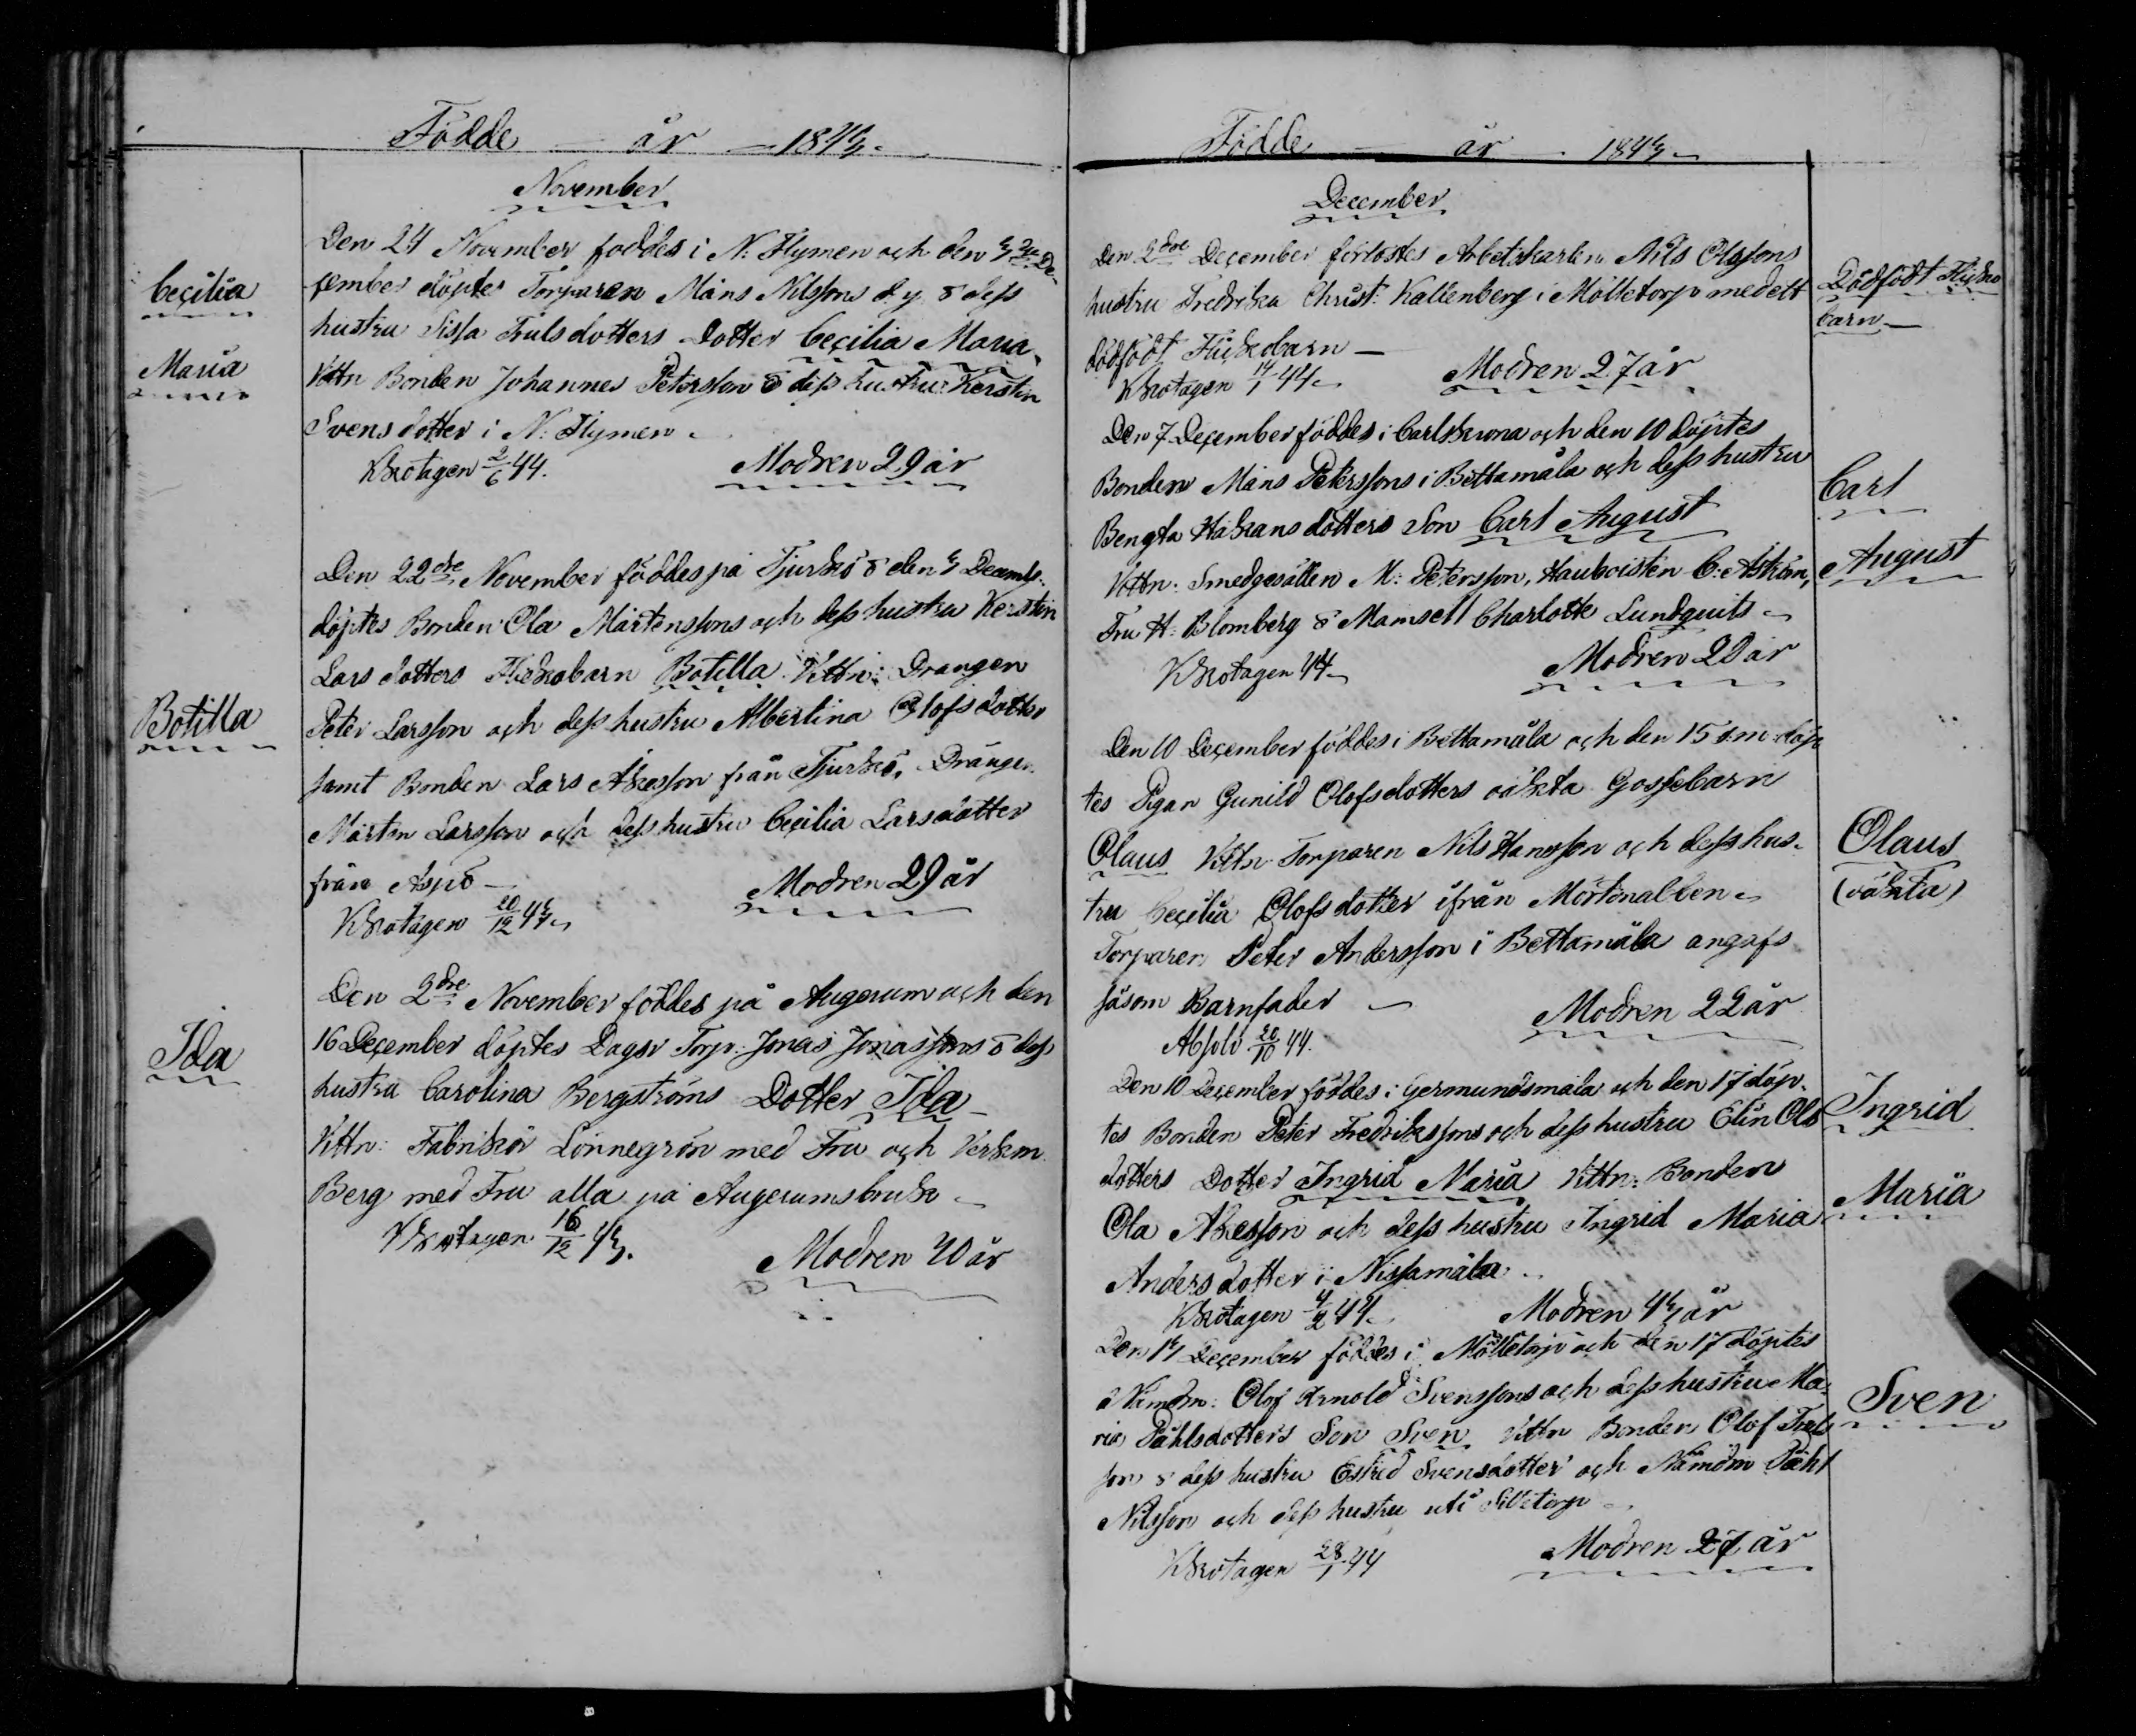 Födde — år — 1843.
November
Cecilia
Maria
Den 24 November föddes i N: Flymen och den 3 De-
cember döptes Torparen Måns Nilssons d.y. & dess
hustru Sissa Trulsdotters Dotter Cecilia Maria.
Vittn Bonden Johannes Petersson & dess hustru Kerstin
Svensdotter i N: Flymen.
Kkotagen 2/6 44. Modren 29 år
Botilla
Den 22dre November föddes på Tjurkö & den 3 Decemb.
döptes Bonden Ola Mårtenssons och dess hustru Kerstin
Lars dotters Flickobarn Botilla. Vittn: Drängen
Peter Larsson och dess hustru Albertina Olofsdotter
samt Bonden Lars Åkesson från Tjurkö, Drängen
Mårten Larsson och dess hustru Cecilia Larsdotter
från Aspö —
Kkotagen 20/12 43. Modren 29 år
Ida
Den 2dre November föddes på Augerum och den
16 December döptes Dagsv Torp: Jonas Jonassons & dess
hustru Carolina Bergströms Dotter Ida —
Vittn: Fabrikör Lönnegrön med Fru och Verkm
Berg med Fru alla på Augerumsbruk —
Kkotagen 16/12 43. Modren 40 år
Födde — år — 1843.
December
Den 2dre December förlöstes Arbetskarlen Nils Olssons
hustru Fredrika Christ: Kallenberg i Mölletorp med ett
dödfödt Flickobarn —
Kkotagen 14/1 44. Modren 27 år
Dödfödt Flicko
barn —
Den 7 December föddes i Carlskrona och den 10 döptes
Bonden Måns Peterssons i Bettamåla och dess hustru
Bengta Håkansdotters Son Carl August
Vittn: Smedgesällen M: Petersson, Hauboisten C: Åström,
Fru H: Blomberg & Mamsell Charlotte Lundquits —
Kkotagen 44. Modren 29 år
Carl
August
Den 10 December föddes i Bettamåla och den 15 s.m döp
tes Pigan Gunild Olofsdotters oäkta Gossebarn
Olaus Vittn Torparen Nils Hansson och dess hus-
tru Cecilia Olofsdotter ifrån
Torparen Peter Andersson i Bettamåla angafs
såsom Barnfader —
Absolv 20/10 44. Modren 22 år
Olaus
(oäkta)
Den 10 December föddes i Germundsmåla och den 17 döp-
tes Bonden Peter Fredrikssons och dess hustru Elin Ols
dotters Dotter Ingrid Maria Vittn: Bonden
Ola Åkesson och dess hustru Ingrid Maria
Andersdotter i Nissamåla.
Kkotagen 4/2 44. Modren 43 år
Ingrid
Maria
Den 13 December föddes i Mölletorp och den 17 döptes
Nämdm: Olof Arnold Svenssons och dess hustru Ma-
ria Påhlsdotters Son Sven Vittn Bonden Olof Truls
son & dess hustru Estrid Svensdotter och Nämdm Påhl
Nilsson och dess hustru uti Silletorp —
Kkotagen 28/1 44 Modren 27 år
Sven